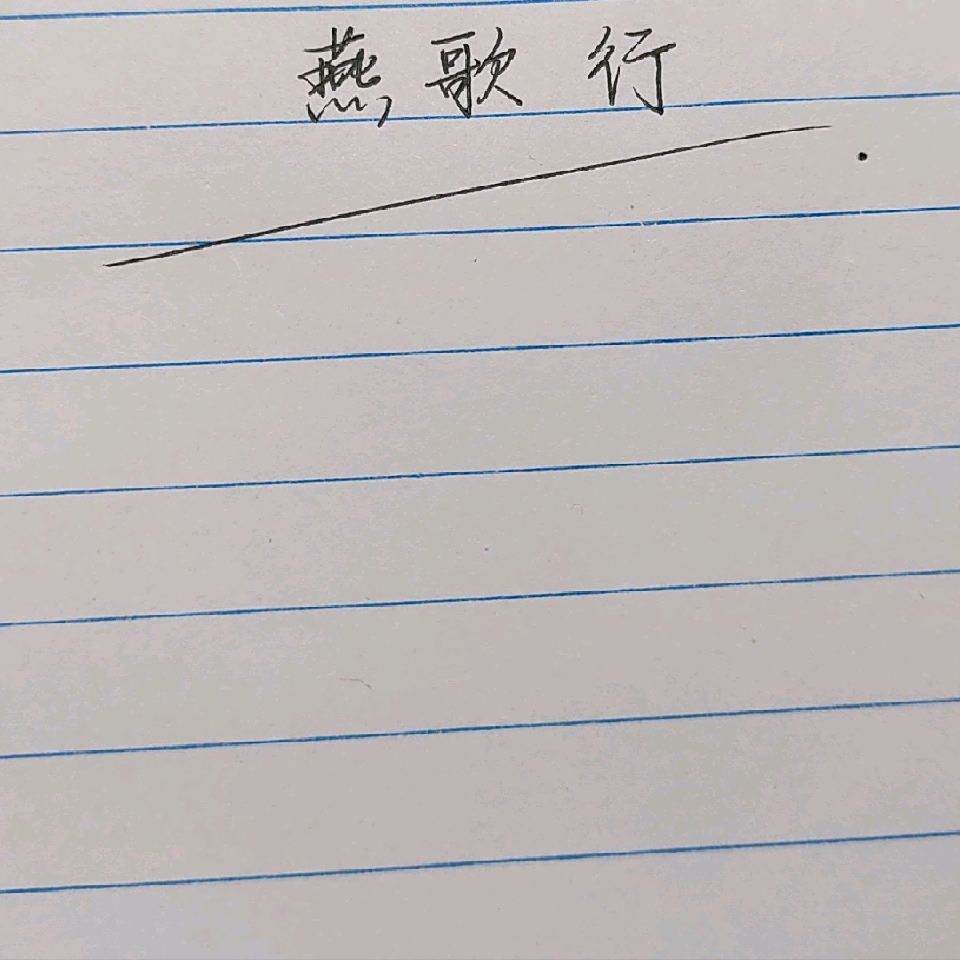 燕歌行